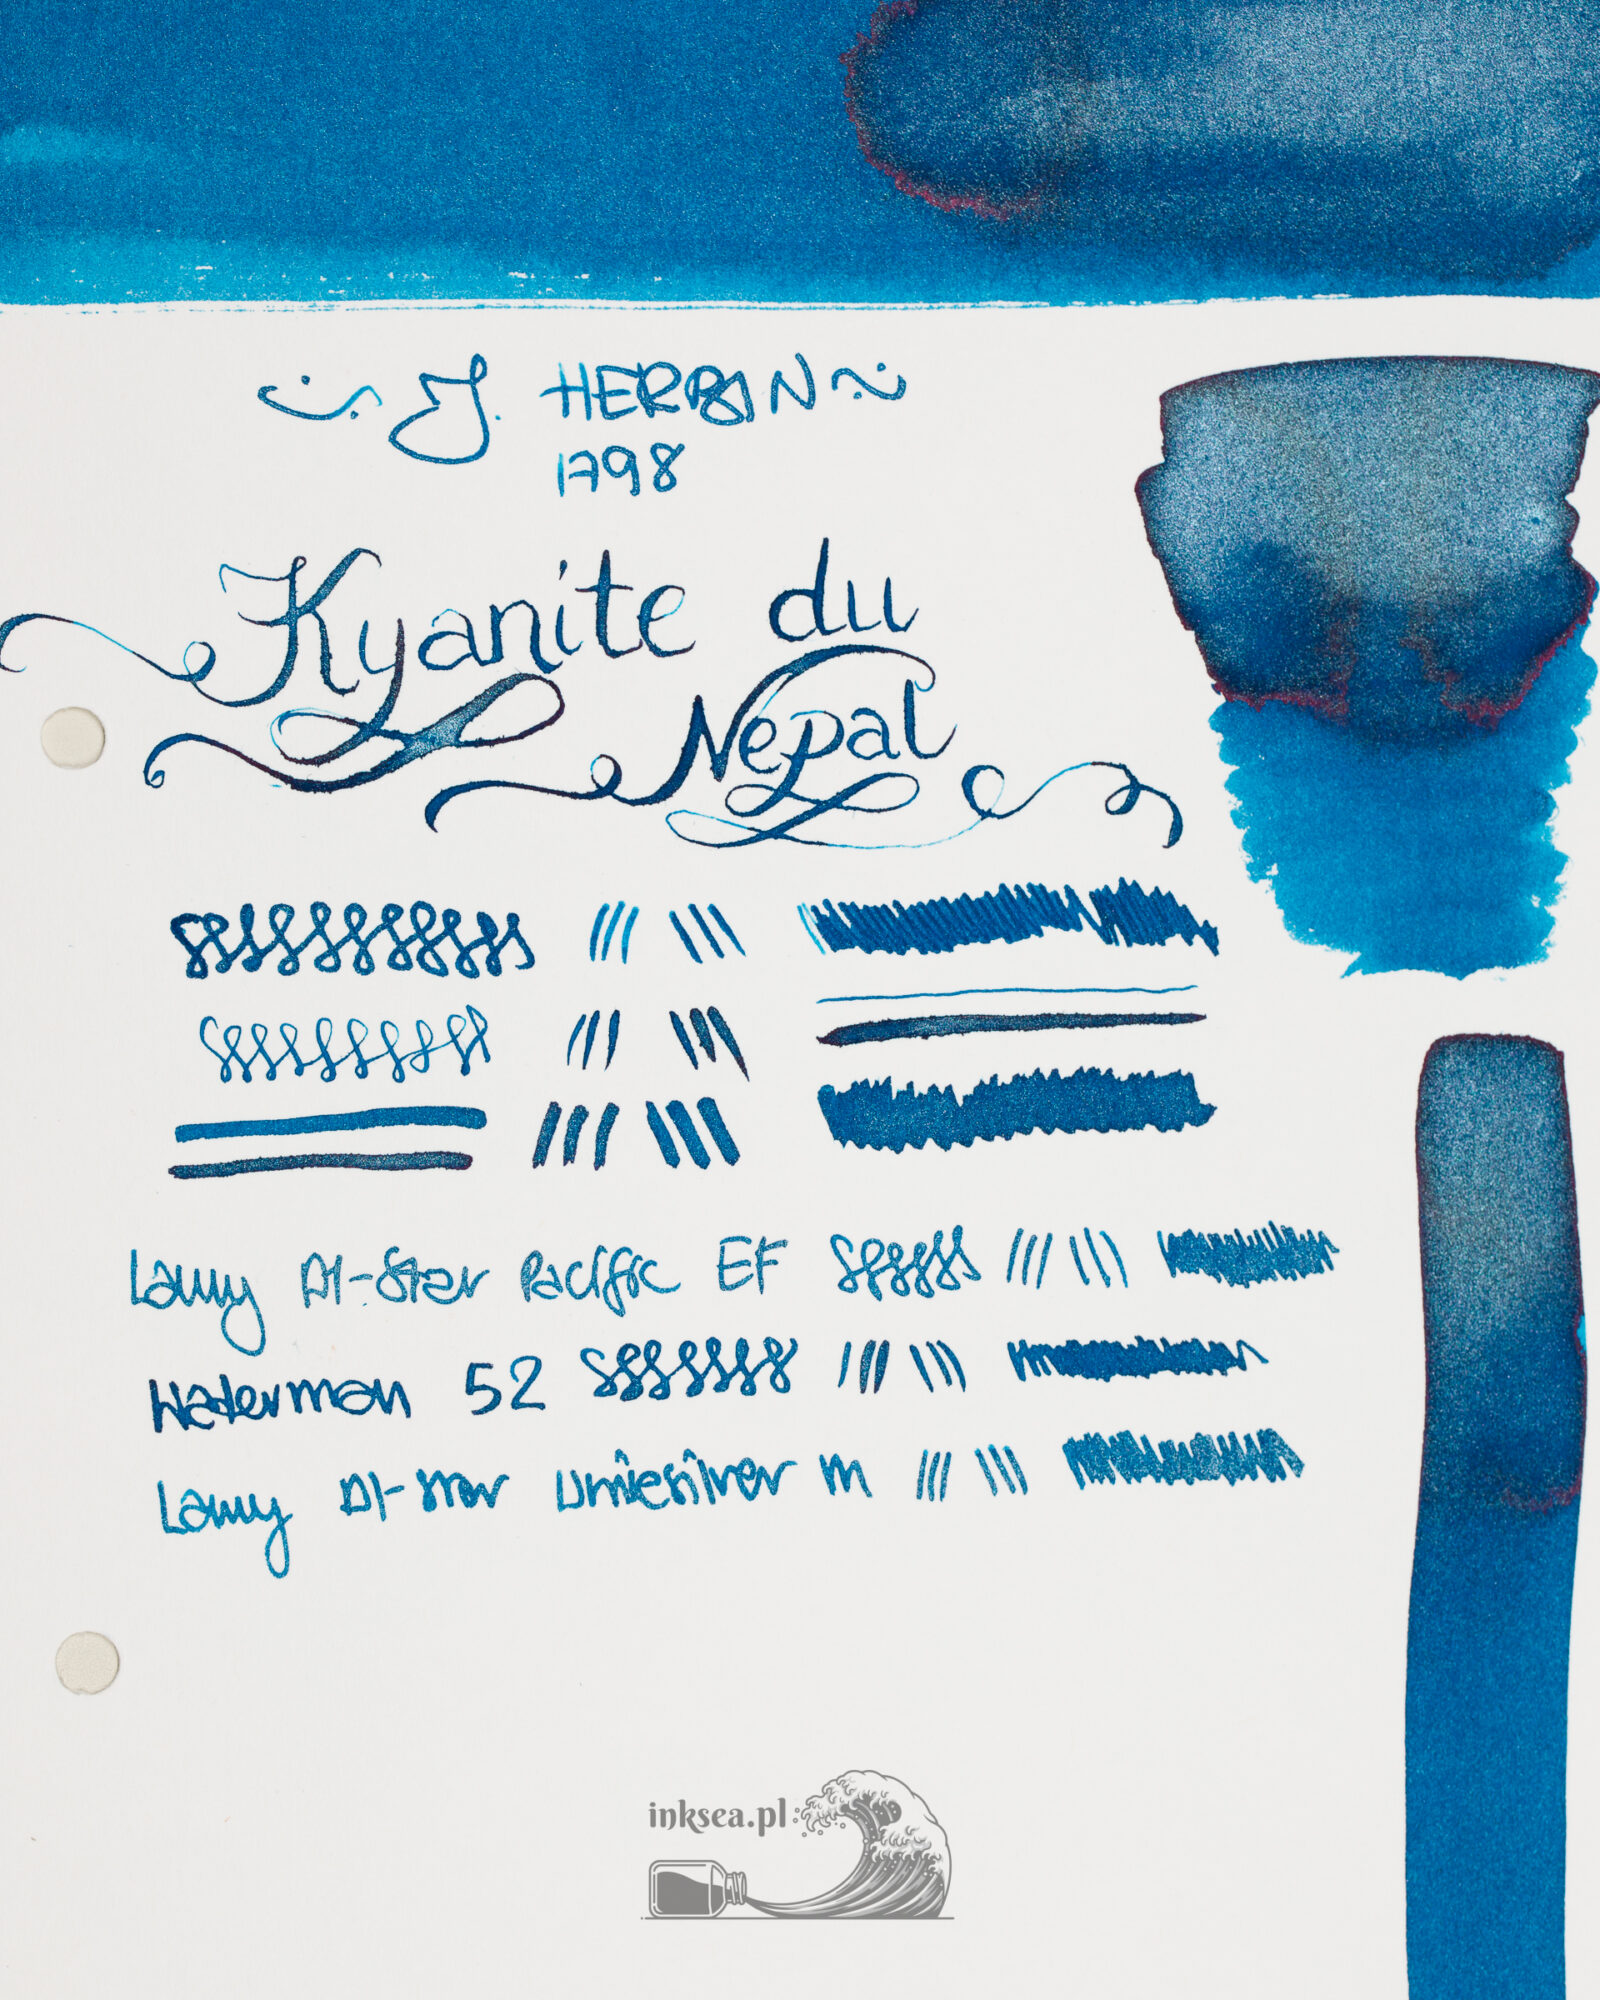 J. HERBIN
1798
Kyanite du
Nepal
Lamy Al-Star Pacific EF
Waterman 52
Lamy Al-star M
inksea.pl